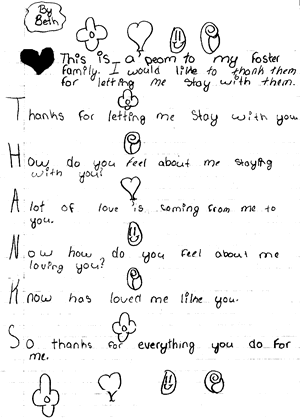 By
Beth
This is a peom to my foster
family. I would like to thank them
for letting me stay with them.
Thanks for letting me stay with you
How do you feel about me staying
with you?
A lot of love is coming from me to
you.
Now how do you feel about me
loving you?
Know has loved me like you.
So thanks for everything you do for
me.